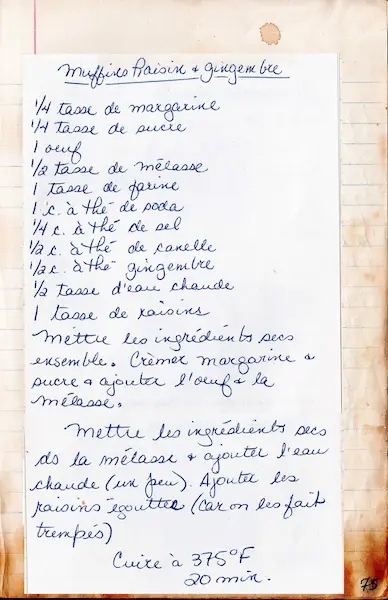 Muffins Raisin & gingembre
1/4 tasse de margarine
1/4 tasse de sucre
1 oeuf
1/2 tasse de mélasse
1 tasse de farine
1 c. à thé de soda
1/4 c. à thé de sel
1/2 c. à thé de canelle
1/2 c. à thé gingembre
1/2 tasse d'eau chaude
1 tasse de raisins
Mettre les ingrédients secs
ensemble. Crèmer margarine &
sucre & ajouter l'oeuf & la
mélasse.
Mettre les ingrédients secs
ds la mélasse & ajouter l'eau
chaude (un peu). Ajouter les
raisins égouttés (car on les fait
trempés)
Cuire à 375°F
20 min.
75